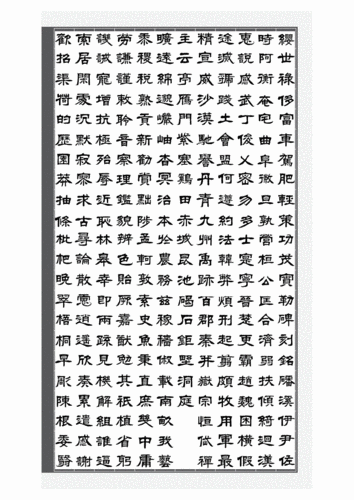 纓世祿侈富車駕肥輕策功茂實勒碑刻銘磻溪伊尹佐
時阿衡奄宅曲阜微旦孰營桓公匡合濟弱扶傾綺迴漢
惠說感武丁俊乂密勿多士寔寧晉楚更霸趙魏困橫假
途滅虢踐土會盟何遵約法韓弊煩刑起翦頗牧用軍最
精宣威沙漠馳譽丹青九州禹跡百郡秦并嶽宗恒岱禪
主云亭雁門紫塞雞田赤城昆池碣石鉅野洞庭
曠遠綿邈巖岫杳冥治本於農務茲稼穡俶載南畝我藝
黍稷稅熟貢新勸賞黜陟孟軻敦素史魚秉直庶幾中庸
勞謙謹敕聆音察理鑑貌辨色貽厥嘉猷勉其祗植省躬
譏誡寵增抗極殆辱近恥林皋幸即兩疏見機解組誰逼
索居閒處沉默寂寥求古尋論散慮逍遙欣奏累遣慼謝
歡招渠荷的歷園莽抽條枇杷晚翠梧桐早彫陳根委翳